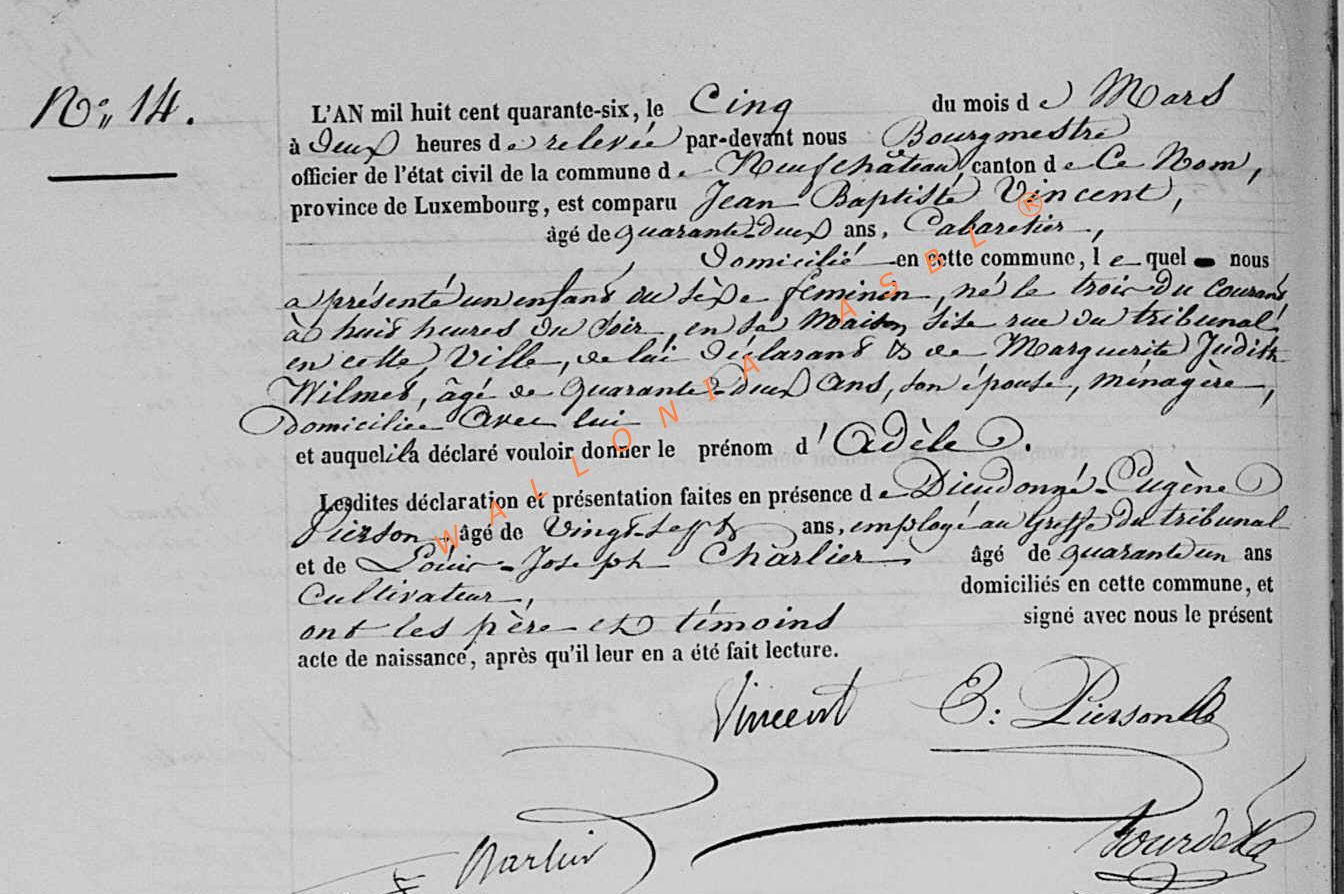 N° 14.
L'AN mil huit cent quarante-six, le Cinq du mois de Mars
à Deux heures de relevée par-devant nous Bourgmestre
officier de l'état civil de la commune de Neufchâteau, canton de Ce Nom,
province de Luxembourg, est comparu Jean Baptiste Vincent,
âgé de quarante-deux ans, Cabaretier,
Domicilié en cette commune, lequel nous
a présenté un enfant du sèxe féminin, né le trois du courant,
à huit heures du soir, en sa Maison, sise rue du tribunal,
en cette Ville, de lui déclarant et de Marguerite Judith
Wilmet, âgé de quarante-deux ans, son épouse, ménagère,
Domiciliée avec lui
et auquel il a déclaré vouloir donner le prénom d'Adèle.
Lesdites déclaration et présentation faites en présence de Dieudonné-Eugène
Pierson, âgé de vingt-sept ans, employé au Greffe du tribunal
et de Louis-Joseph Charlier, âgé de quarante un ans
Cultivateur, domiciliés en cette commune, et
ont les père et témoins signé avec nous le présent
acte de naissance, après qu'il leur en a été fait lecture.
Vincent E: Pierson
Charlier
WALLONIA ASBL ®